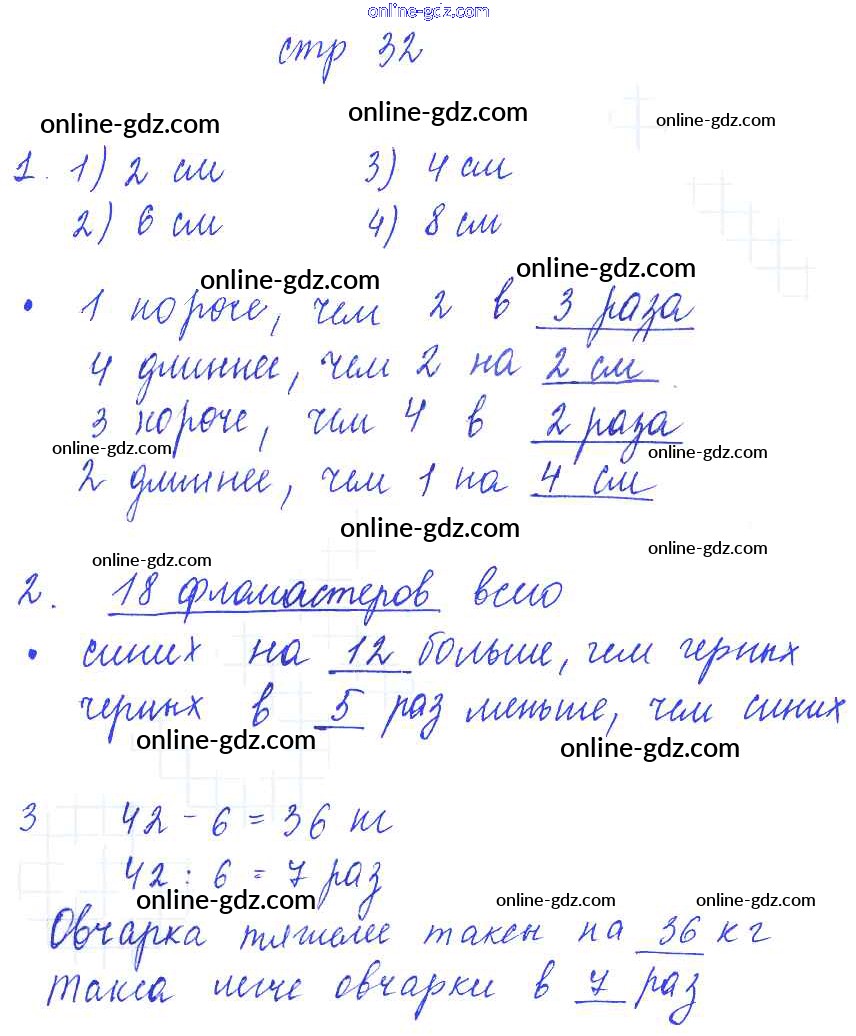 online-gdz.com
стр 32
online-gdz.com online-gdz.com online-gdz.com
1. 1) 2 см 3) 4 см
2) 6 см 4) 8 см
online-gdz.com online-gdz.com
• 1 короче, чем 2 в 3 раза
4 длиннее, чем 2 на 2 см
3 короче, чем 4 в 2 раза
online-gdz.com online-gdz.com
2 длиннее, чем 1 на 4 см
online-gdz.com
online-gdz.com online-gdz.com
2. 18 фломастеров всего
• синих на 12 больше, чем черных
черных в 5 раз меньше, чем синих
online-gdz.com online-gdz.com
3 42 - 6 = 36 кг
42 : 6 = 7 раз
online-gdz.com online-gdz.com online-gdz.com
Овчарка тяжелее таксы на 36 кг
Такса легче овчарки в 7 раз